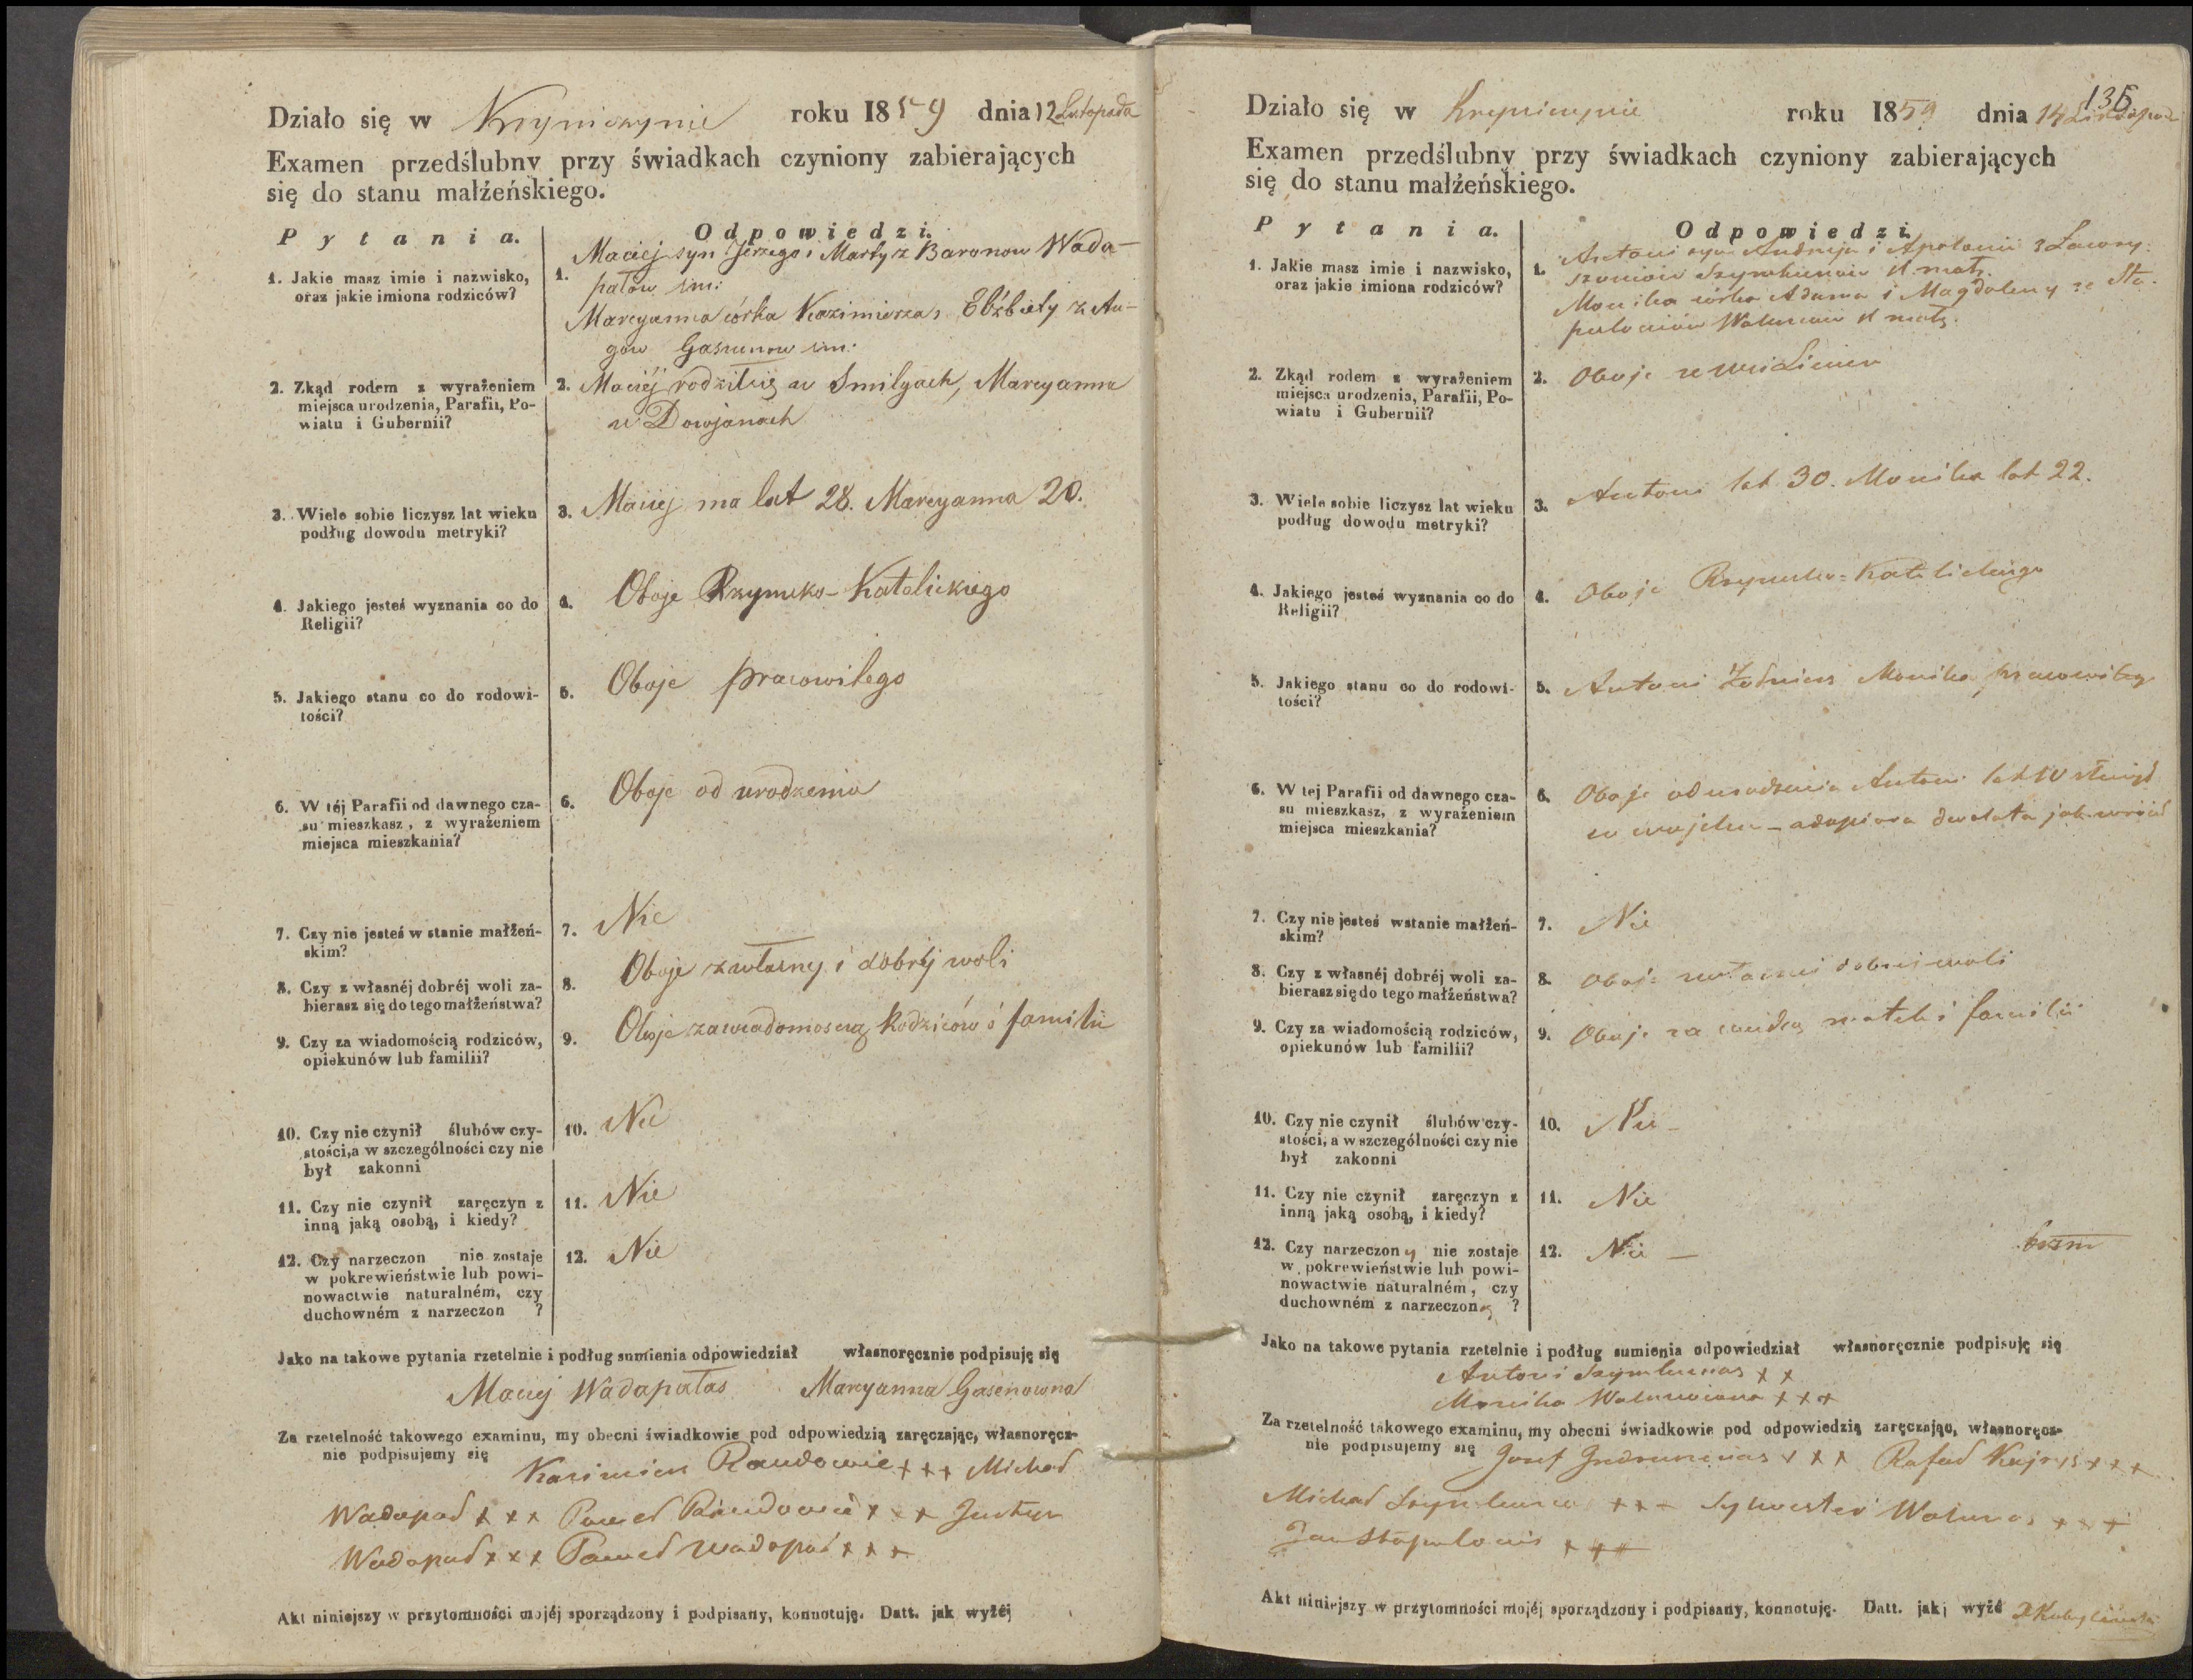 Działo się w Krynicznie roku 1859 dnia 12 Listopada
Examen przedślubny przy świadkach czyniony zabierających
się do stanu małżeńskiego.
Pytania.
Odpowiedzi.
1. Jakie masz imie i nazwisko,
oraz jakie imiona rodziców?
1. Maciej syn Jerzego i Marty z Baranow Wada-
pałow
Marcyanna córka Kazimierza i Elżbiety z Au-
gow
2. Zkąd rodem z wyrażeniem
miejsca urodzenia, Parafii, Po-
wiatu i Gubernii?
2. Maciéj rodził się w Smilgach, Marcyanna
w Dowjanach
3. Wiele sobie liczysz lat wieku
podług dowodu metryki?
3. Maciej ma lat 28. Marcyanna 20.
4. Jakiego jesteś wyznania co do
Religii?
4. Oboje Rzymsko-Katolickiego
5. Jakiego stanu co do rodowi-
tości?
5. Oboje pracowitego
6. W téj Parafii od dawnego cza-
su mieszkasz, z wyrażeniem
miejsca mieszkania?
6. Oboje od urodzenia
7. Czy nie jesteś w stanie małżeń-
skim?
7. Nie
8. Czy z własnéj dobréj woli za-
bierasz się do tego małżeństwa?
8. Oboje z własny i dobréj woli
9. Czy za wiadomością rodziców,
opiekunów lub familii?
9. Oboje za wiadomoscią Rodziców i familii
10. Czy nie czynił ślubów czy-
stości, a w szczególności czy nie
był zakonni
10. Nie
11. Czy nie czynił zaręczyn z
inną jaką osobą, i kiedy?
11. Nie
12. Czy narzeczon nie zostaje
w pokrewieństwie lub powi-
nowactwie naturalném, czy
duchowném z narzeczon ?
12. Nie
Jako na takowe pytania rzetelnie i podług sumienia odpowiedział własnoręcznie podpisuję się
Maciej Wadapałas Marcyanna Gasenowna
Za rzetelność takowego examinu, my obecni świadkowie pod odpowiedzią zaręczając, własnoręcz-
nie podpisujemy się
Kazimierz +++ Michał
Wadapał +++ Paweł +++ Justyn
Wadapał +++ Paweł Wadapał +++
Akt niniejszy w przytomności mojéj sporządzony i podpisany, konnotuję. Datt. jak wyżéj
135
Działo się w roku 1859 dnia 14 Listopada
Examen przedślubny przy świadkach czyniony zabierających
się do stanu małżeńskiego.
Pytania.
Odpowiedzi.
1. Jakie masz imie i nazwisko,
oraz jakie imiona rodziców?
1. Antoni syn Andrzeja i Apolonii z Ławry-
Monika córka Adama i Magdaleny ze Sta-
2. Zkąd rodem z wyrażeniem
miejsca urodzenia, Parafii, Po-
wiatu i Gubernii?
2. Oboje ze wsi
3. Wiele sobie liczysz lat wieku
podług dowodu metryki?
3. Antoni lat 30. Monika lat 22.
4. Jakiego jesteś wyznania co do
Religii?
4. Oboje Rzymsko=Katolickiego
5. Jakiego stanu co do rodowi-
tości?
5. Antoni Żołnierz Monika pracowitego
6. W tej Parafii od dawnego cza-
su mieszkasz, z wyrażeniem
miejsca mieszkania?
6. Oboje od urodzenia Antoni lat 10 służył
w wojsku - a dopiero dwa lata jak wrócił
7. Czy nie jesteś wstanie małżeń-
skim?
7. Nie
8. Czy z własnéj dobréj woli za-
bierasz się do tego małżeństwa?
8. Oboje z własnej dobrej woli
9. Czy za wiadomością rodziców,
opiekunów lub familii?
9. Oboje za matek i familii
10. Czy nie czynił ślubów czy-
stości, a w szczególności czy nie
był zakonni
10. Nie -
11. Czy nie czynił zaręczyn z
inną jaką osobą, i kiedy?
11. Nie
12. Czy narzeczony nie zostaje
w pokrewieństwie lub powi-
nowactwie naturalném, czy
duchowném z narzeczoną ?
12. Nie -
Jako na takowe pytania rzetelnie i podług sumienia odpowiedział własnoręcznie podpisuję się
Antoni Szymkunas ++
Monika +++
Za rzetelność takowego examinu, my obecni świadkowie pod odpowiedzią zaręczając, własnoręcz-
nie podpisujemy się Jozef +++ Rafał +++
Michał Szymkunas +++ Sylwester Walunas +++
Jan Stapulonis +++
Akt niniejszy w przytomności mojéj sporządzony i podpisany, konnotuję. Datt. jak wyżé